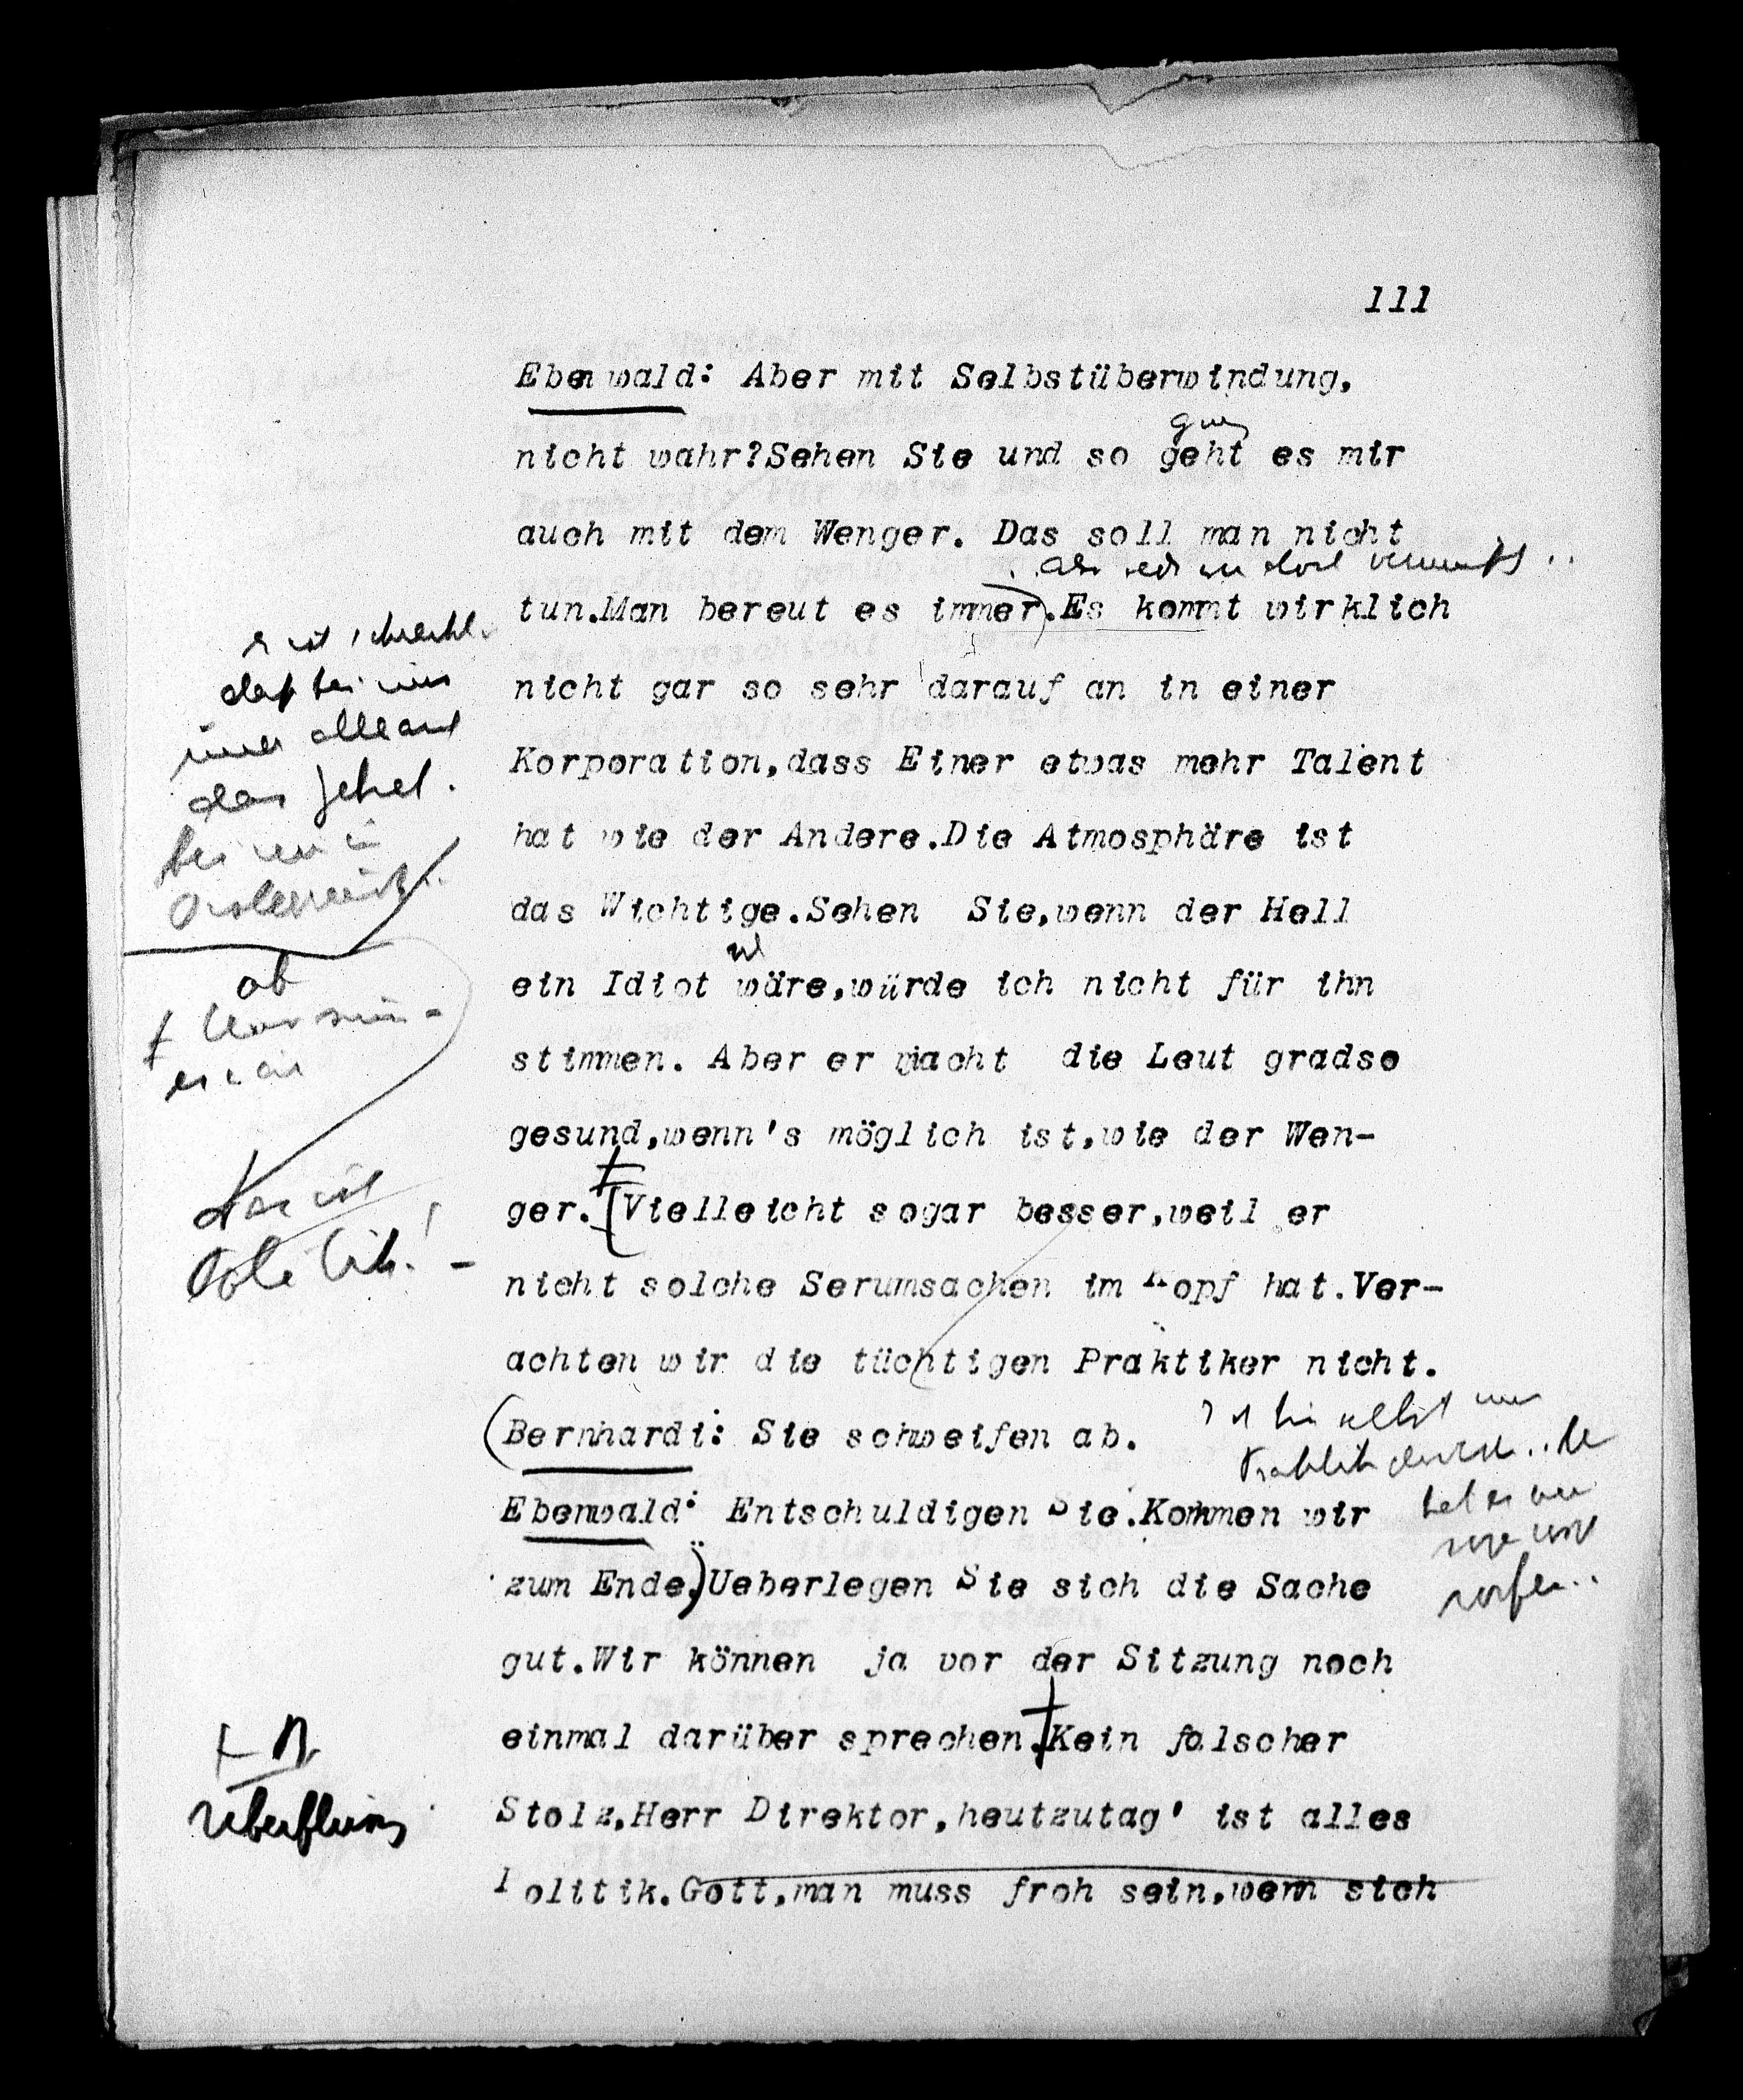 111
Ebenwald: Aber mit Selbstüberwindung,
ging
nicht wahr?Sehen Sie und so geht es mir
auch mit dem Wenger. Das soll man nicht
tun.Man bereut es immer.Es kommt wirklich
nicht gar so sehr darauf an in einer
Korporation,dass Einer etwas mehr Talent
hat wie der Andere.Die Atmosphäre ist
das Wichtige.Sehen Sie,wenn der Hell
ein Idiot wäre,würde ich nicht für ihn
stimmen. Aber er macht die Leut gradso
gesund,wenn's möglich ist,wie der Wen-
ger. Vielleicht sogar besser,weil er
nicht solche Serumsachen im Kopf hat.Ver-
achten wir die tüchtigen Praktiker nicht.
(Bernhardi: Sie schweifen ab.
Ebenwald: Entschuldigen Sie.Kommen wir
zum Ende.)Ueberlegen Sie sich die Sache
gut.Wir können ja vor der Sitzung noch
einmal darüber sprechen.Kein falscher
Stolz,Herr Direktor,heutzutag' ist alles
Politik.Gott,man muss froh sein,wenn sich
daß bei uns
immer alles auf
bei uns in
Oesterreich
ob
Das ist
Politik! –